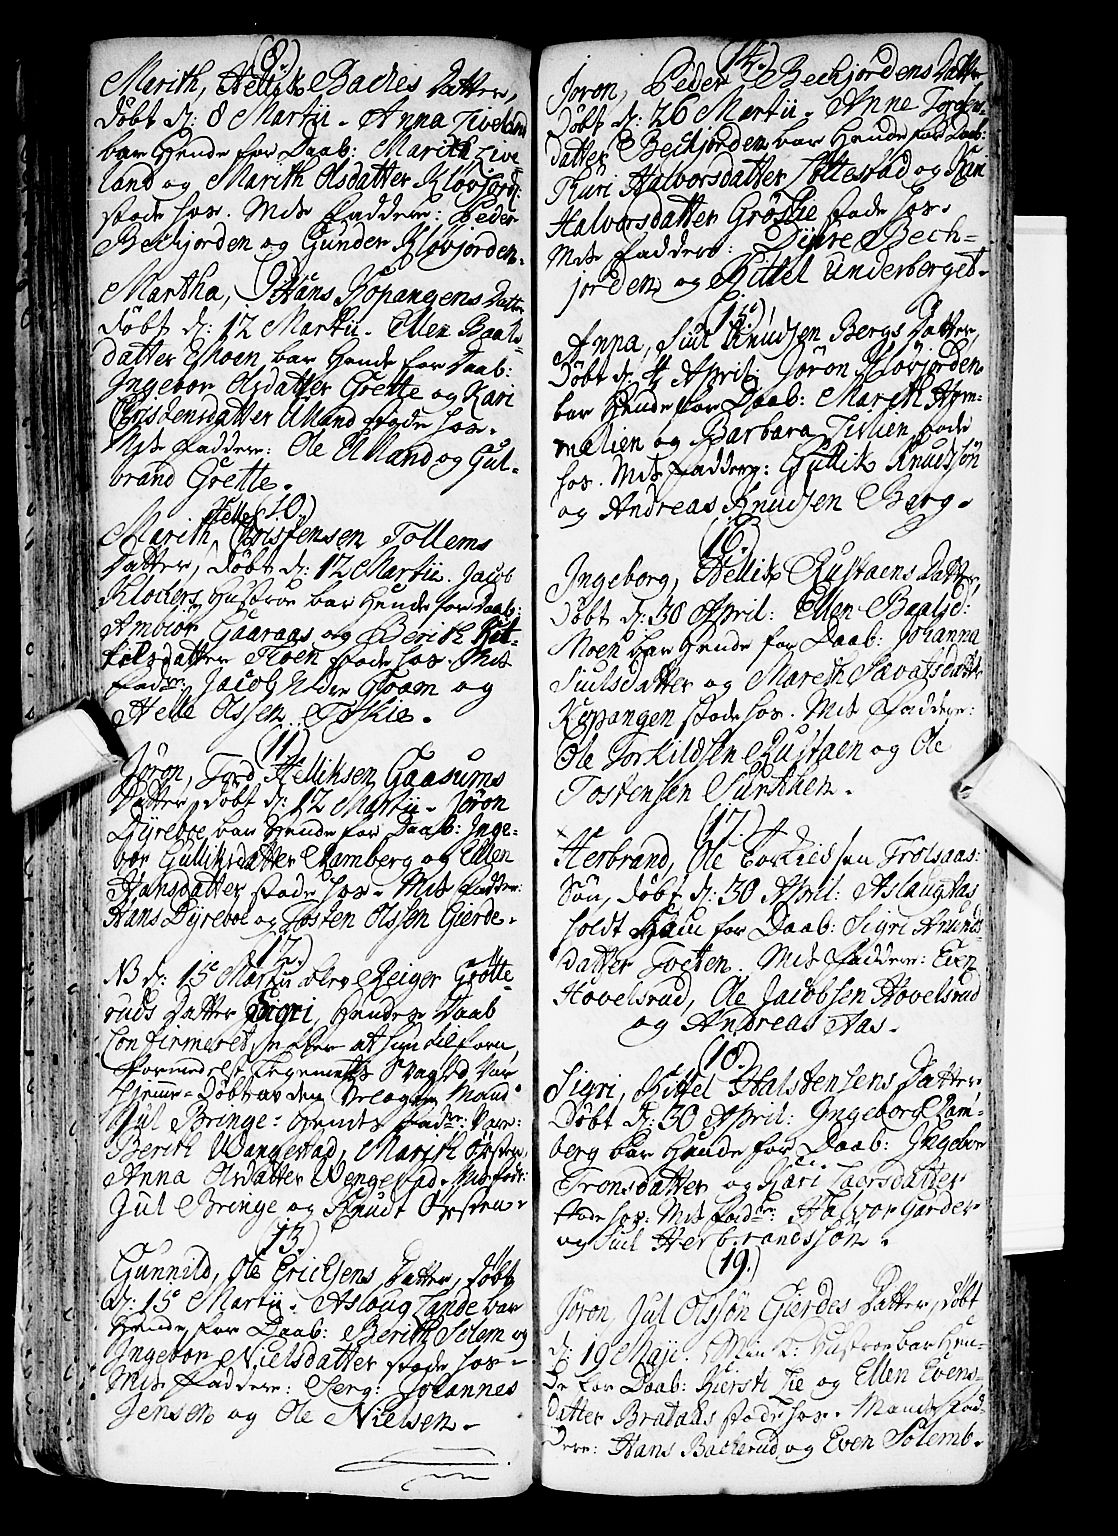 (8.)
Marith, Hellik Baches Datter,
døbt d: 8 Martii. Anna Tiveland
bar Hende for Daab: Marith Live
land og Marith Olsdatter Kløvjord:
stode hos. Mds Faddere: Peder
Bechjorden og Gunder Kløvjorden.
(9.)
Martha, Hans Kopangens Datter
døbt d: 12 Martii. Ellen Baals-
datter Choen bar Hende for Daab:
Ingebor Olsdatter Grette og Kari
Christensdatter Ulland stode hos.
Mds Faddere: Ole Ulland og Gul-
brand Grette.
(10.)
Marith, Helle Christensen Tollems
Datter, døbt d: 12 Martii. Jacob
Klockers Hustroe bar Hende for Daab:
Ambior Gaaraas og Berith Kit-
tilsdatter Moen stode hos. Mds
Fadr: Jacob Nedre Foam og
Helle Olssen Foskie.
(11.)
Jøron, Tord Helliksen Gaasums
Datter, døbt d: 12 Martii. Jøron
Dyreboe bar Hende for Daab: Inge-
bor Gulliksdatter Ramberg og Ellen
Hansdatter stode hos. Mds Fadder:
Hans Dyreboe og Tosten Olssen Gierde.
(12.)
NB d: 15 Martii blev Reiger Grøtte-
ruds Datter Sigri, Hendes Daab
Confirmeret, efter at hun tilforn,
formedelst Legemets Svaghed var
Hjemme-Døbt av den Velagte Mand
Jul Bringe. Hendes Fadre: vare:
Berith Wangestad, Marith Opsten,
Anna Olsdatter Wengestad. Mds fadr:
Jul Bringe og Knudt Opsten.
(13.)
Gunnild, Ole Ericksens Datter, døbt
d: 15 Martii. Aslaug Lande bar
Hende for Daab: Berith Solem og
Ingebor Nielsdatter stode hos.
Mds Faddere: Serg: Johannes
Jensen og Ole Nielsen.
(14.)
Jøron, Peder Bechjordens Datter,
Døbt d: 26 Martii. Anne
datter Bechjorden bar Hende for Daab:
Thuri Halvorsdatter Jøtterød og Kari
Halvorsdatter Grøslie stode hos.
Mds Faddere: Dyre Bech-
jorden og Kittel Underberget.
(15.)
Anna, Juul Knudsen Bergs Datter,
Døbt d: 4 April: Jøron Kløvjorden
bar Hende for Daab: Marith Hom-
melien og Barbara Juvlien stode
hos. Mds Faddere: Gullik Knudsøn
og Andreas Knudsen Berg.
(16.)
Ingeborg, Hellik Rustaens Datter,
Døbt d: 30 April: Ellen Baalsd:
Moen bar Hende for Daab: Johanna
Juulsdatter og Mareth Savatsdatter
Kopangen stode hos. Mds Faddere:
Ole Torkildsen Rustaen og Ole
Tostensen Surkhen.
(17.)
Herbrand, Ole Torkildsen Trolsaas:
Søn, døbt d: 30 April: Aslaug Aas
holdt ham for Daab: Sigri Arunds-
datter Toeten. Mds Faddere: Even
Hovelsrud, Ole Jacobsen Hovelsrud
og Andreas Aas.
(18.)
Sigri, Kittel Halstensens Datter
Døbt d: 30 April: Ingebor Ram-
berg bar Hende for Daab: Ingebor
Tronsdatter og Kari Laorsdatter
stode hos: Mds Faddre: Halvor Garder
og Juul Herbrandssøn.
(19.)
Jøron, Jul Olssøn Gierdes Datter, døbt
d: 19 Maji. Min K: Hustroe bar Hen-
de for Daab: Kiersti Lie og Ellen Evens-
datter Brataas stode hos. Mands Fad-
dere: Hans Backerud og Even Solemb.